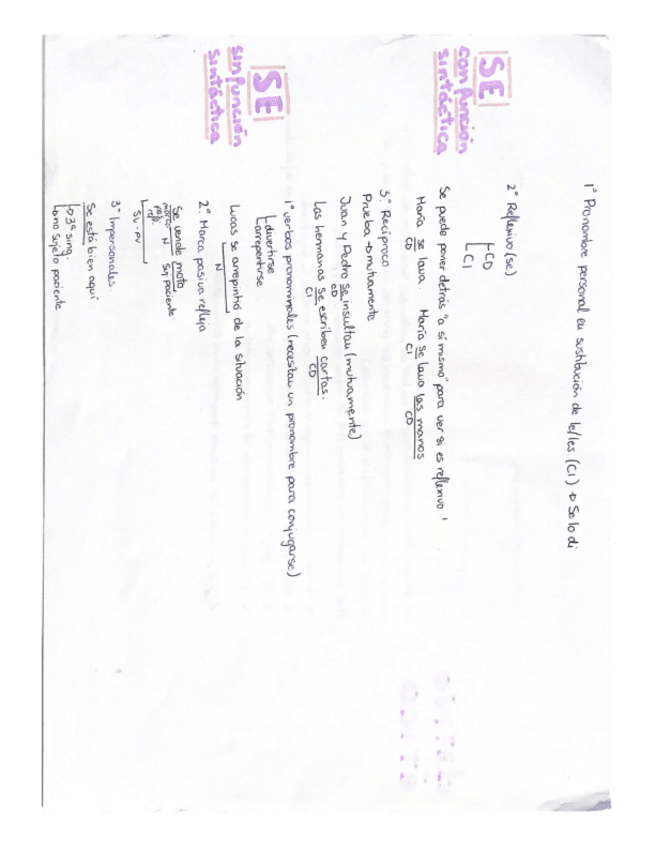 SE
con función
sintáctica
1º Pronombre personal en sustitución de le/les (CI) → Se lo di
2º Reflexivo (se)
CD
CI
Se puede poner detrás "a sí mismo" para ver si es reflexivo
María se lava. María se lava las manos
CD CI CD
3º Recíproco
Prueba → mutuamente
Juan y Pedro se insultan (mutuamente)
CD
Las hermanas se escriben cartas.
CI CD
SE
sin función
sintáctica
1º verbos pronominales (necesitan un pronombre para conjugarse)
divertirse
arrepentirse
Lucas se arrepintió de la situación
N
2º Marca pasiva refleja
Se vende moto
marca N SN paciente
pas.
ref.
SV-PV
3º Impersonales
Se está bien aquí
→ 3ª sing.
→ no sujeto paciente